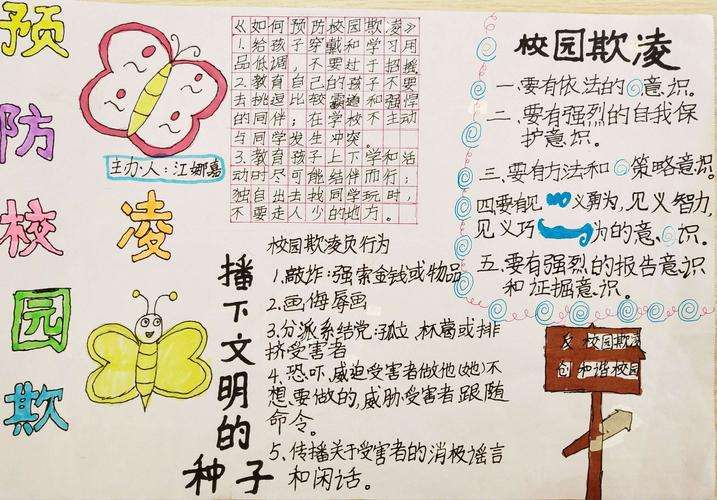 预
防
校
园
欺
凌
主办人:江娜嘉
《如何预防校园欺凌》
1.给孩子穿戴和学习用
品低调,不要过于招摇
2.教育自己的孩子不要
去挑逗比较霸道和强悍
的同伴;在学校不主动
与同学发生冲突。
3.教育孩子上下学和活
动时尽可能结伴而行;
独自出去找同学玩时,
不要走人少的地方。
校园欺凌
一.要有依法的意识。
二、要有强烈的自我保
护意识。
三.要有方法和策略意识。
四要有见义勇为,见义智力,
见义巧为的意识。
五.要有强烈的报告意识
和证掘意识。
播
下
文
明
的
种子
校园欺凌负行为
1.敲炸:强索金钱或物品
2.画侮辱画
3.分派系结党:孤立,林葛或排
挤受害者
4.恐吓,威迫受害者做他(她)不
想要做的,威胁受害者跟随
命令。
5.传播关于受害者的消极谣言
和闲话。
反校园欺凌
创和谐校园